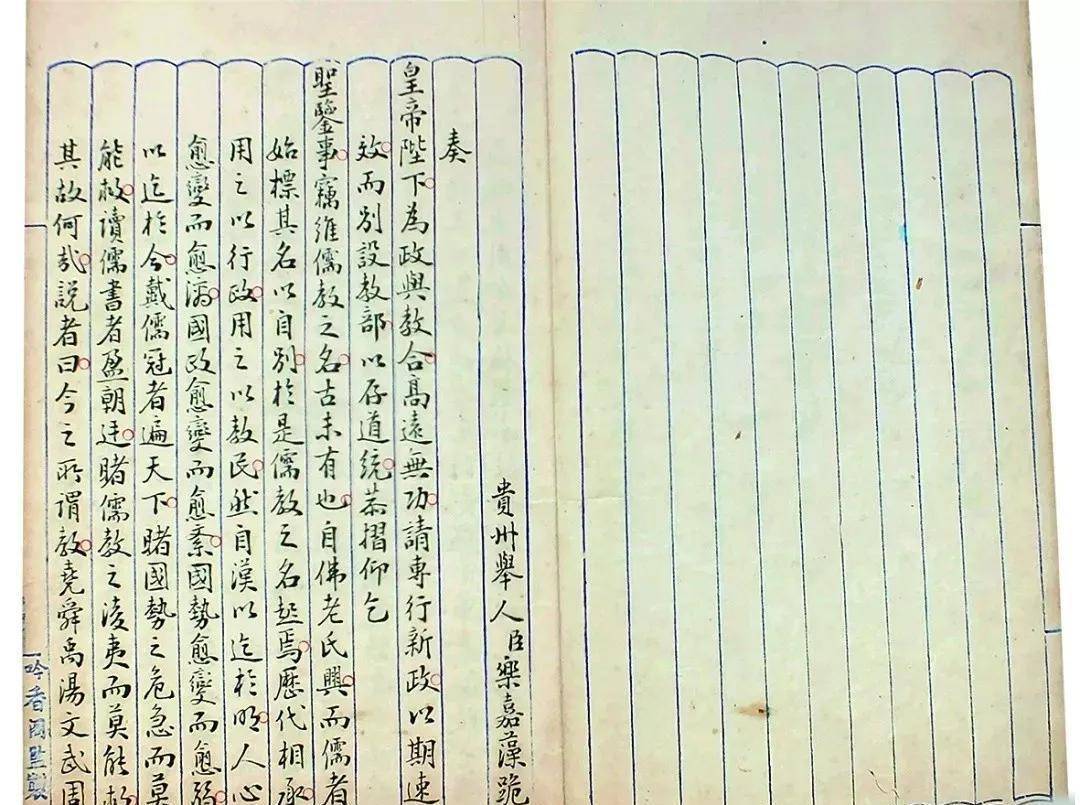 貴州舉人臣樂嘉藻跪
奏
皇帝陛下為政與教合高遠無功請專行新政以期速
效而別設教部以存道統恭摺仰乞
聖鑒事竊維儒教之名古未有也自佛老氏興而儒者
始標其名以自別於是儒教之名起焉歷代相承
用之以行政用之以教民然自漢以迄於明人心
愈變而愈漓國政愈變而愈紊國勢愈變而愈弱
以迄於今戴儒冠者遍天下睹國勢之危急而莫
能救讀儒書者盈朝廷睹儒教之淩夷而莫能救
其故何哉說者曰今之所謂教堯舜禹湯文武周
吟香閣監製